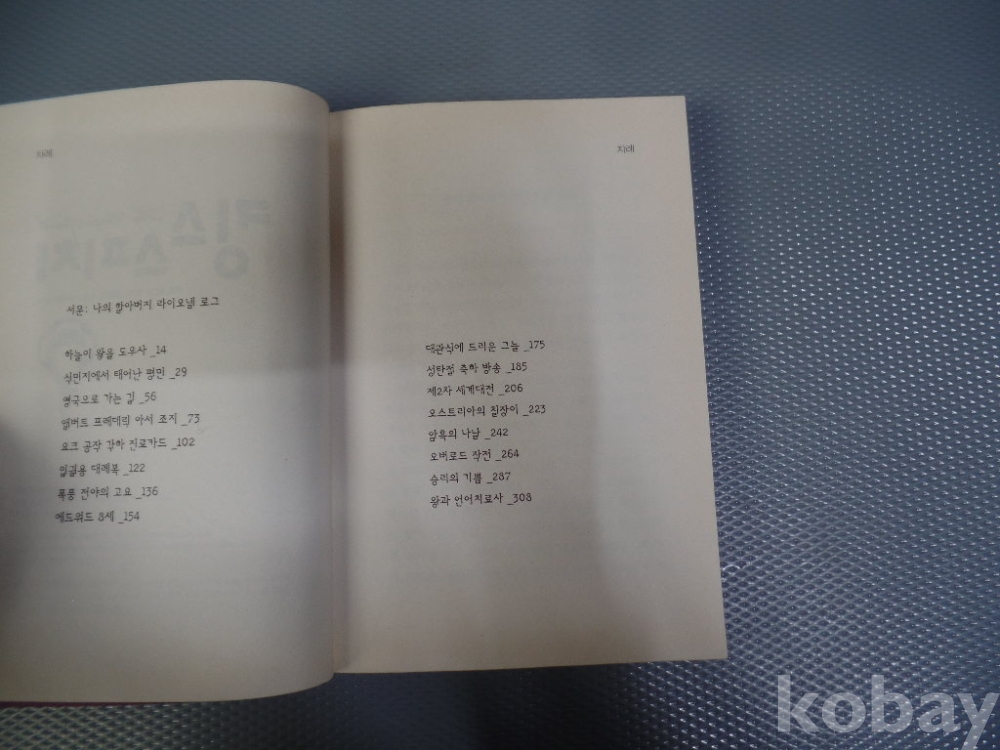 차례
서문: 나의 할아버지 라이오넬 로그
하늘이 왕을 도우사 _14
식민지에서 태어난 평민 _29
영국으로 가는 길 _56
앨버트 프레더릭 아서 조지 _73
요크 공작 각하 진료카드 _102
알현용 대례복 _122
폭풍 전야의 고요 _136
에드워드 8세 _154
차례
대관식에 드리운 그늘 _175
성탄절 축하 방송 _185
제2차 세계대전 _206
오스트리아의 칠장이 _223
암흑의 나날 _242
오버로드 작전 _264
승리의 기쁨 _287
왕과 언어치료사 _308
킹스
스피치
kobay